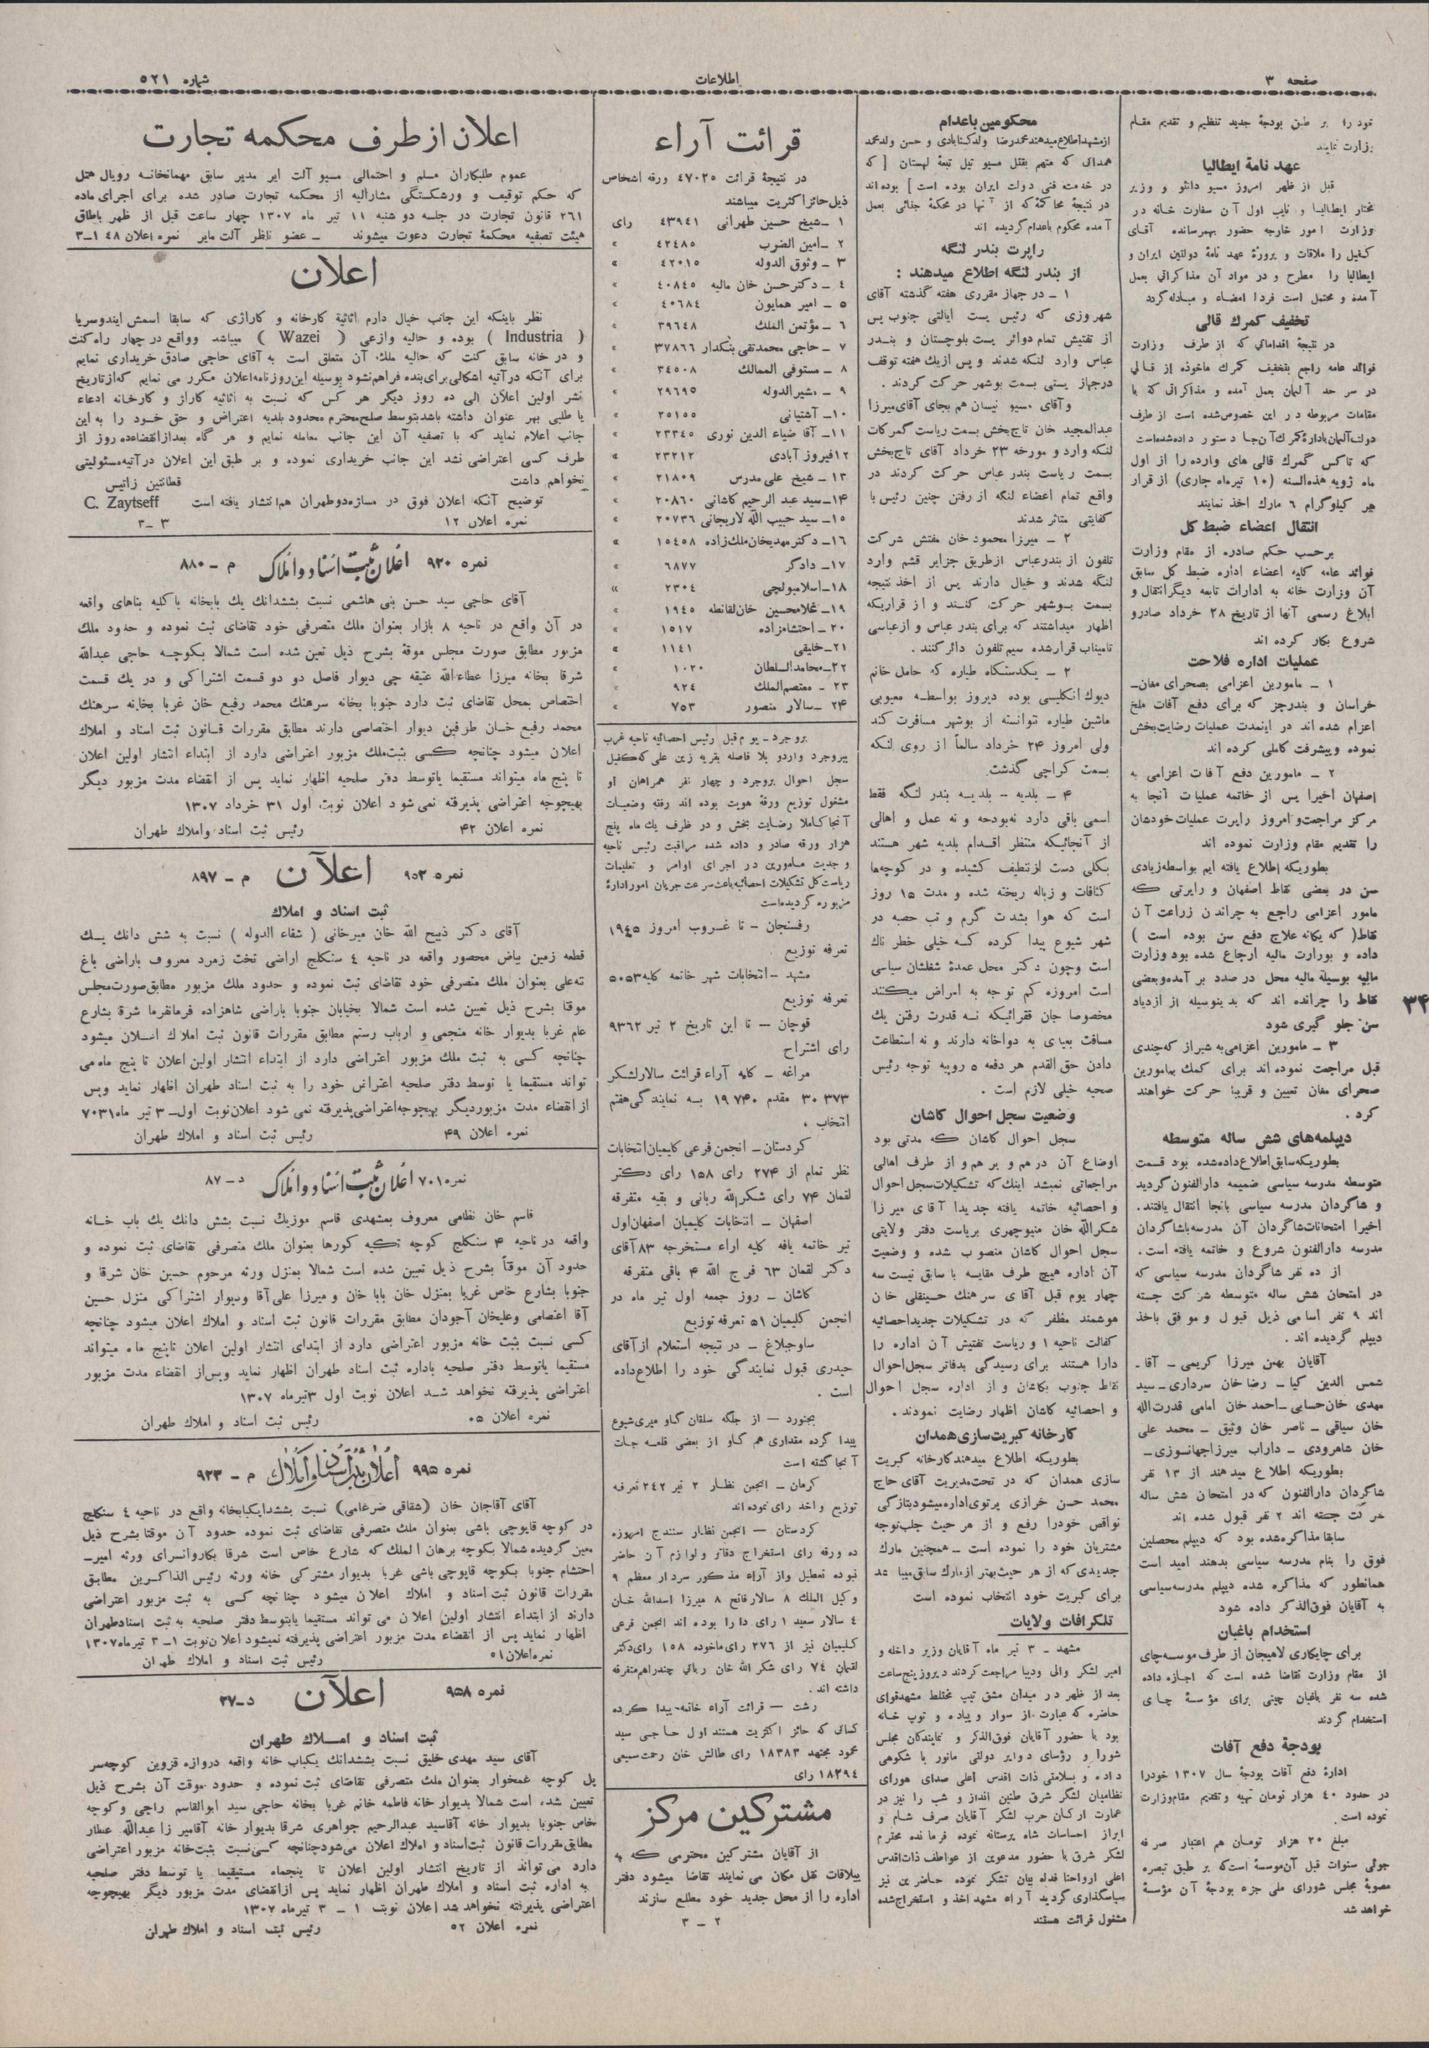 صفحه ۳
اطلاعات
شماره ۵۲۱
نمود را بر طبق بودجهٔ جدید تنظیم و تقدیم مقام
وزارت نمایند
عهد نامهٔ ایطالیا
قبل از ظهر امروز مسیو دانلو و وزیر
مختار ایطالیا و نایب اول آن سفارت خانه در
وزارت امور خارجه حضور بهمرسانده آقای
کفیل را ملاقات و پروژهٔ عهد نامهٔ دولتین ایران و
ایطالیا را مطرح و در مواد آن مذاکراتی بعمل
آمده و محتمل است فردا امضاء و مبادله گردد
تخفیف گمرك قالی
در نتیجهٔ اقداماتی که از طرف وزارت
فوائد عامه راجع بتخفیف گمرك ماخوذه از قالی
در سر حد آلمان بعمل آمده و مذاکراتی که با
مقامات مربوطه در این خصوص شده است از طرف
دولت آلمان بادارهٔ گمرك آن جا دستور داده شده است
که تاکس گمرك قالی های وارده را از اول
ماه ژویه هذه السنه (۱۰ تیرماه جاری) از قرار
هر کیلوگرام ۶ مارك اخذ نمایند
انتقال اعضاء ضبط کل
برحسب حکم صادره از مقام وزارت
فوائد عامه کلیه اعضاء اداره ضبط کل سابق
آن وزارت خانه به ادارات تابعه دیگر انتقال و
ابلاغ رسمی آنها از تاریخ ۲۸ خرداد صادر و
شروع بکار کرده اند
عملیات اداره فلاحت
۱ - مامورین اعزامی بصحرای مغان-
خراسان و بندرجز که برای دفع آفات ملخ
اعزام شده اند در اینمدت عملیات رضایت بخش
نموده و پیشرفت کاملی کرده اند
۲ - مامورین دفع آفات اعزامی به
اصفهان اخیرا پس از خاتمه عملیات آنجا به
مرکز مراجعت و امروز راپرت عملیات خودشان
را تقدیم مقام وزارت نموده اند
بطوریکه اطلاع یافته ایم بواسطه زیادی
سن در بعضی نقاط اصفهان و راپرتی که
مامور اعزامی راجع به چراندن زراعت آن
نقاط( که یگانه علاج دفع سن بوده است )
داده و بوزارت مالیه ارجاع شده بود وزارت
مالیه بوسیله مالیه محل در صدد بر آمده و بعضی
نقاط را چرانده اند که بدینوسیله از ازدیاد
سن جلو گیری شود
۳ - مامورین اعزامی به شیراز که چندی
قبل مراجعت نموده اند برای کمك بمامورین
صحرای مغان تعیین و قریبا حرکت خواهند
کرد .
دیپلمه های شش ساله متوسطه
بطوریکه سابق اطلاع داده شده بود قسمت
متوسطه مدرسه سیاسی ضمیمه دارالفنون گردید
و شاگردان مدرسه سیاسی بانجا انتقال یافتند.
اخیرا امتحانات شاگردان آن مدرسه باشاگردان
مدرسه دارالفنون شروع و خاتمه یافته است.
از ده نفر شاگردان مدرسه سیاسی که
در امتحان شش ساله متوسطه شرکت جسته
اند ۹ نفر اسامی ذیل قبول و موفق باخذ
دیپلم گردیده اند .
آقایان بهمن میرزا کریمی - آقا-
شمس الدین کیا - رضا خان سرداری - سید
مهدی خان حسابی - احمد خان امامی قدرت الله
خان سیاقی - ناصر خان وثیق - محمد علی
خان شاهرودی - داراب میرزا جهانسوزی-
بطوریکه اطلاع میدهند از ۱۳ نفر
شاگردان دارالفنون که در امتحان شش ساله
شرکت جسته اند ۲ نفر قبول شده اند
سابقا مذاکره شده بود که دیپلم محصلین
فوق را بنام مدرسه سیاسی بدهند امید است
همانطور که مذاکره شده دیپلم مدرسه سیاسی
به آقایان فوق الذکر داده شود
استخدام باغبان
برای چایکاری لاهیجان از طرف موسسه چای
از مقام وزارت تقاضا شده است که اجازه داده
شده سه نفر باغبان چینی برای مؤسسهٔ چای
استخدام گردند
بودجهٔ دفع آفات
ادارهٔ دفع آفات بودجهٔ سال ۱۳۰۷ خود را
در حدود ۴۰ هزار تومان تهیه و تقدیم مقام وزارت
نموده است.
مبلغ ۲۰ هزار تومان هم اعتبار صرفه
جوئی سنوات قبل آن موسسهٔ است که بر طبق تبصره
مصوبهٔ مجلس شورای ملی جزء بودجهٔ آن مؤسسهٔ
خواهد شد
محکومین باعدام
از مشهد اطلاع میدهند محمدرضا ولد کنابادی و حسن ولد محمد
همدانی که متهم بقتل مسیو تیل تبعهٔ لهستان [ که
در خدمت فنی دولت ایران بوده است ] بوده اند
در نتیجهٔ محاکمهٔ که از آنها در محکمهٔ جنائی بعمل
آمده محکوم باعدام گردیده اند
راپرت بندر لنگه
از بندر لنگه اطلاع میدهند :
۱ - در جهاز مقرری هفته گذشته آقای
شهروزی که رئیس پست ایالتی جنوب پس
از تفتیش تمام دوائر پست بلوچستان و بندر
عباس وارد لنگه شدند و پس از یك هفته توقف
درجهاز پستی بسمت بوشهر حرکت کردند .
و آقای مسیو نیسان هم بجای آقای میرزا
عبدالمجید خان تاج بخش بسمت ریاست گمرکات
لنگه وارد و مورخه ۲۳ خرداد آقای تاج بخش
بسمت ریاست بندر عباس حرکت کردند در
واقع تمام اعضاء لنگه از رفتن چنین رئیس با
کفایتی متاثر شدند
۲ - میرزا محمود خان مفتش شرکت
تلفون از بندرعباس از طریق جزایر قشم وارد
لنگه شدند و خیال دارند پس از اخذ نتیجه
بسمت بوشهر حرکت کنند و از قراریکه
اظهار میداشتند که برای بندر عباس و از عباسی
تامیناب قرار شده سیم تلفون دائر کنند.
۲ - یکدستگاه طیاره که حامل خانم
دیوك انگلیسی بوده دیروز بواسطه معیوبی
ماشین طیاره نتوانسته از بوشهر مسافرت کند
ولی امروز ۲۴ خرداد سالماً از روی لنگه
بسمت کراچی گذشت.
۴ - بلدیه -- بلدیه بندر لنگه فقط
اسمی باقی دارد نه بودجه و نه عمل و اهالی
از آنجائیکه منتظر اقدام بلدیه شهر هستند
بکلی دست از تنظیف کشیده و در کوچه ها
کثافات و زباله ریخته شده و مدت ۱۵ روز
است که هوا بشدت گرم و تب حصبه در
شهر شیوع پیدا کرده که خیلی خطر ناك
است وچون دکتر محل عمدهٔ شغلشان سیاسی
است امروزه کم توجه به امراض میکنند
مخصوصا جان فقرائیکه نه قدرت رفتن یك
مسافت بعیدی به دواخانه دارند و نه استطاعت
دادن حق القدم هر دفعه ۵ روپیه توجه رئیس
صحیه خیلی لازم است .
وضعیت سجل احوال کاشان
سجل احوال کاشان که مدتی بود
اوضاع آن درهم و برهم و از طرف اهالی
مراجعاتی نمیشد اینك که تشکیلات سجل احوال
و احصائیه خاتمه یافته جدیدا آقای میرزا
شکرالله خان منیوچهری بریاست دفتر ولایتی
سجل احوال کاشان منصوب شده و وضعیت
آن اداره هیچ طرف مقایسه با سابق نیست سه
چهار یوم قبل آقای سرهنك حسینقلی خان
هوشمند مظفر که در تشکیلات جدید احصائیه
کفالت ناحیه ۱ و ریاست تفتیش آن اداره را
دارا هستند برای رسیدگی بدفاتر سجل احوال
نقاط جنوب بکاشان و از اداره سجل احوال
و احصائیه کاشان اظهار رضایت نمودند.
کارخانه کبریت سازی همدان
بطوریکه اطلاع میدهند کارخانه کبریت
سازی همدان که در تحت مدیریت آقای حاج
محمد حسن خرازی پرتوی اداره میشود بتازگی
نواقص خود را رفع و از هر حیث جلب توجه
مشتریان خود را نموده است - همچنین مارك
جدیدی که از هر حیث بهتر از مارك سابق میباشد
برای کبریت خود انتخاب نموده است
تلگرافات ولایات
مشهد - ۳ تیر ماه آقایان وزیر داخله و
امیر لشگر والی ودیبا مراجعت کردند دیروز پنج ساعت
بعد از ظهر در میدان مشق تیپ مختلط مشهد قوای
حاضره که عبارت از سوار و پیاده و توپ خانه
بود با حضور آقایان فوق الذکر و نمایندگان مجلس
شورا و رؤسای دوایر دولتی مانور با شکوهی
داده و بسلامتی ذات اقدس اعلی صدای هورای
نظامیان لشگر شرق طنین انداز و شب را نیز در
عمارت ارکان حرب لشگر آقایان صرف شام و
ابراز احساسات شاه پرستانه نموده فرمانده محترم
لشگر شرق با حضور مدعوین از عواطف ذات اقدس
اعلی ارواحنا فداه بیان تشکر نموده حاضرین نیز
سپاسگذاری گردید آراء مشهد اخذ و استخراج شده
مشغول قرائت هستند
قرائت آراء
در نتیجهٔ قرائت ۴۷۰۲۵ ورقه اشخاص
ذیل حائز اکثریت میباشند
۱ - شیخ حسین طهرانی ۴۳۹۴۱ رای
۲ - امین الضرب ۴۲۴۸۵ »
۳ - وثوق الدوله ۴۲۰۱۵ »
۴ - دکتر حسن خان مالیه ۴۰۸۴۵ »
۵ - امیر همایون ۴۰۶۸۴ »
۶ - مؤتمن الملك ۳۹۶۴۸ »
۷ - حاجی محمدتقی بنکدار ۳۷۸۶۶ »
۸ - مستوفی الممالك ۳۴۵۰۸ »
۹ - مشیرالدوله ۲۹۶۹۵ »
۱۰- آشتیانی ۲۵۱۵۵ »
۱۱- آقا ضیاء الدین نوری ۲۳۳۴۵ »
۱۲فیروز آبادی ۲۳۲۱۲ »
۱۳ - شیخ علی مدرس ۲۱۸۰۹ »
۱۴- سید عبد الرحیم کاشانی ۲۰۸۶۰ »
۱۵- سید حبیب الله لاریجانی ۲۰۷۳۶ »
۱۶- دکتر مهدیخان ملك زاده ۱۵۴۵۸ »
۱۷- دادگر ۶۸۷۷ »
۱۸- اسلامبولچی ۲۳۰۴ »
۱۹- غلامحسین خان لقانطه ۱۹۴۵ »
۲۰ - احتشام زاده ۱۵۱۷ »
۲۱- خلیقی ۱۱۴۱ »
۲۲- محامدالسلطان ۱۰۲۰ »
۲۳ - معتصم الملك ۹۲۴ »
۲۴ - سالار منصور ۷۵۳ »
بروجرد - یوم قبل رئیس احصائیه ناحیه غرب
ببروجرد وارد و بلا فاصله بقریه زین علی که کفیل
سجل احوال بروجرد و چهار نفر همراهان او
مشغول توزیع ورقهٔ هویت بوده اند رفته وضعیات
آنجا کاملا رضایت بخش و در ظرف یك ماه پنج
هزار ورقه صادر و داده شده مراقبت رئیس ناحیه
و جدیت مامورین در اجرای اوامر و تعلیمات
ریاست کل تشکیلات احصائیه باعث سرعت جریان امور ادارهٔ
مزبوره گردیده است
رفسنجان - تا غروب امروز ۱۹۴۵
تعرفه توزیع
مشهد - انتخابات شهر خاتمه کلیه ۵۰۵۳
تعرفه توزیع
قوچان - تا این تاریخ ۲ تیر ۹۳۶۲
رای اشتراح
مراغه - کلیه آراء قرائت سالار لشکر
۳۰۳۷۳ مقدم ۱۹۷۴۰ به نمایندگی هفتم
انتخاب .
کردستان - انجمن فرعی کلیمیان انتخابات
نظر تمام از ۲۷۴ رای ۱۵۸ رای دکتر
لقمان ۷۴ رای شکرالله ربانی و بقیه متفرقه
اصفهان - انتخابات کلیمیان اصفهان اول
تیر خاتمه یافه کلیه اراء مستخرجه ۸۳ آقای
دکتر لقمان ۶۳ فرج الله ۴ باقی متفرقه
کاشان - روز جمعه اول تیر ماه در
انجمن کلیمیان ۵۱ تعرفه توزیع
ساوجبلاغ - در نتیجه استعلام از آقای
حیدری قبول نمایندگی خود را اطلاع داده
است .
بجنورد - از جلگه سلقان گاو میری شیوع
پیدا کرده مقداری هم گاو از بعضی قلعه جات
آنجا گشته است
کرمان - انجمن نظار ۲ تیر ۲۴۲ تعرفه
توزیع و اخذ رای نموده اند
کردستان - انجمن نظار سنندج امروزه
ده ورقه رای استخراج دفاتر و لوازم آن حاضر
نبوده تعطیل واز آراء مذکور سردار معظم ۹
وکیل الملك ۸ سالار فاتح ۸ میرزا اسدالله خان
۴ سالار سعید ۱ رای دارا بوده اند انجمن فرعی
کلیمیان نیز از ۲۷۶ رای ماخوذه ۱۵۸ رای دکتر
لقمان ۷۴ رای شکر الله خان ربانی چندراهم متفرقه
داشته اند .
رشت - قرائت آراء خاتمه پیدا کرده
کسانی که حائز اکثریت هستند اول حاجی سید
محمود مجتهد ۱۸۳۸۳ رای طالش خان رحمت سمیعی
۱۸۲۹۴ رای
مشترکین مرکز
از آقایان مشترکین محترمی که به
ییلاقات نقل مکان می نمایند تقاضا میشود دفتر
اداره را از محل جدید خود مطلع سازند
۲ - ۳
اعلان از طرف محکمه تجارت
عموم طلبکاران مسلم و احتمالی مسیو آلت ایر مدیر سابق مهمانخانه رویال هتل
که حکم توقیف و ورشکستگی مشارالیه از محکمه تجارت صادر شده برای اجرای ماده
۲۶۱ قانون تجارت در جلسه دو شنبه ۱۱ تیر ماه ۱۳۰۷ چهار ساعت قبل از ظهر باطاق
هیئت تصفیه محکمهٔ تجارت دعوت میشوند - عضو ناظر آلت مایر نمره اعلان ۴۸ ۱-۳
اعلان
نظر باینکه این جانب خیال دارم اثاثیهٔ کارخانه و کاراژی که سابقا اسمش ایندوسریا
( Industria ) بوده و حالیه وازعی ( Wazei ) میباشد وواقع در چهار راه کنت
و در خانه سابق کنت که حالیه ملك آن متعلق است به آقای حاجی صادق خریداری نمایم
برای آنکه در آتیه اشکالی برای بنده فراهم نشود بوسیله این روزنامه اعلان مکرر می نمایم که از تاریخ
نشر اولین اعلان الی ده روز دیگر هر کس که نسبت به اثاثیه کاراژ و کارخانه ادعاء
یا طلبی بهر عنوان داشته باشد بتوسط صلح محترم محدود بلدیه اعتراض و حق خود را به این
جانب اعلام نماید که با تصفیه آن این جانب معامله نمایم و هر گاه بعد از انقضاء ده روز از
طرف کسی اعتراضی نشد این جانب خریداری نموده و بر طبق این اعلان در آتیه مسئولیتی
نخواهم داشت قطانتین زاتیس
توضیح آنکه اعلان فوق در ستاره و طهران هم انتشار یافته است C. Zaytseff
نمره اعلان ۱۲ ۳-۳
نمره ۹۲۰ اعلان ثبت اسناد و املاک م - ۸۸۰
آقای حاجی سید حسن بنی هاشمی نسبت بششدانك یك بابخانه باکلیه بناهای واقعه
در آن واقع در ناحیه ۸ بازار بعنوان ملك متصرفی خود تقاضای ثبت نموده و حدود ملك
مزبور مطابق صورت مجلس موقة بشرح ذیل تعین شده است شمالا بکوچه حاجی عبدالله
شرقا بخانه میرزا عطاءالله عتیقه چی دیوار فاصل دو دو قسمت اشتراکی و در یك قسمت
اختصاص بمحل تقاضای ثبت دارد جنوبا بخانه سرهنك محمد رفیع خان غربا بخانه سرهنك
محمد رفیع خان طرفین دیوار اختصاصی دارند مطابق مقررات قانون ثبت اسناد و املاك
اعلان میشود چنانچه کسی بثبت ملك مزبور اعتراضی دارد از ابتداء انتشار اولین اعلان
تا پنج ماه میتواند مستقیما یاتوسط دفتر صلحیه اظهار نماید پس از انقضاء مدت مزبور دیگر
بهیچوجه اعتراضی پذیرفته نمی شود اعلان نوبت اول ۳۱ خرداد ۱۳۰۷
نمره اعلان ۴۲ رئیس ثبت اسناد واملاك طهران
نمره ۹۵۲ اعلان م - ۸۹۷
ثبت اسناد و املاك
آقای دکتر ذبیح الله خان میرخانی ( شفاء الدوله ) نسبت به شش دانك یك
قطعه زمین بیاض محصور واقعه در ناحیه ۴ سنگلج اراضی تخت زمرد معروف باراضی باغ
نه علی بعنوان ملك متصرفی خود تقاضای ثبت نموده و حدود ملك مزبور مطابق صورت مجلس
موقتا بشرح ذیل تعین شده است شمالا بخیابان جنوبا باراضی شاهزاده فرمانفرما شرقا بشارع
عام غربا بدیوار خانه منجمی و ارباب رستم مطابق مقررات قانون ثبت املاك اعلان میشود
چنانچه کسی به ثبت ملك مزبور اعتراضی دارد از ابتداء انتشار اولین اعلان تا پنج ماه می
تواند مستقیما یا توسط دفتر صلحیه اعتراض خود را به ثبت اسناد طهران اظهار نماید وپس
از انقضاء مدت مزبور دیگر بهیچوجه اعتراضی پذیرفته نمی شود اعلان نوبت اول-۳ تیر ماه ۷۰۳۱
نمره اعلان ۴۹ رئیس ثبت اسناد و املاك طهران
نمره ۷۰۱ اعلان ثبت اسناد و املاک د-۸۷
قاسم خان نظامی معروف بمشهدی قاسم موزیك نسبت بشش دانك یك باب خانه
واقعه در ناحیه ۴ سنگلج کوچه تکیه کورها بعنوان ملك متصرفی تقاضای ثبت نموده و
حدود آن موقتاً بشرح ذیل تعیین شده است شمالا بمنزل ورثه مرحوم حسین خان شرقا و
جنوبا بشارع خاص غربا بمنزل خان بابا خان و میرزا علی آقا ودیوار اشتراکی منزل حسین
آقا اعتصامی وعلیخان آجودان مطابق مقررات قانون ثبت اسناد و املاك اعلان میشود چنانچه
کسی نسبت بثبت خانه مزبور اعتراضی دارد از ابتدای انتشار اولین اعلان تاپنج ماه میتواند
مستقیما یاتوسط دفتر صلحیه باداره ثبت اسناد طهران اظهار نماید وپس از انقضاء مدت مزبور
اعتراضی پذیرفته نخواهد شد اعلان نوبت اول ۳تیرماه ۱۳۰۷
نمره اعلان ۰۵ رئیس ثبت اسناد و املاك طهران
نمره ۹۹۵ اعلان ثبت اسناد و املاک م - ۹۲۳
آقای آقاجان خان (شقاقی ضرغامی) نسبت بششدانگیکبابخانه واقع در ناحیه ۴ سنگلج
در کوچه قاپوچی باشی بعنوان ملك متصرفی تقاضای ثبت نموده حدود آن موقتا بشرح ذیل
معین گردیده شمالا بکوچه برهان الملك که شارع خاص است شرقا بکاروانسرای ورثه امیر-
احتشام جنوبا بکوچه قاپوچی باشی غربا بدیوار مشترکی خانه ورثه رئیس الذاکرین مطابق
مقررات قانون ثبت اسناد و املاك اعلان میشود چنانچه کسی به ثبت مزبور اعتراضی
دارند از ابتداء انتشار اولین اعلان می تواند مستقیما یابتوسط دفتر صلحیه به ثبت اسناد طهران
اظهار نماید پس از انقضاء مدت مزبور اعتراضی پذیرفته نمیشود اعلان نوبت ۱- ۳ تیرماه ۱۳۰۷
نمره اعلان ۵۱ رئیس ثبت اسناد و املاك طهران
نمره ۹۵۸ اعلان د-۲۷
ثبت اسناد و املاك طهران
آقای سید مهدی خلیق نسبت بششدانك یکباب خانه واقعه دروازه قزوین کوچه سر
پل کوچه غمخوار بعنوان ملك متصرفی تقاضای ثبت نموده و حدود موقت آن بشرح ذیل
تعیین شده است شمالا بدیوار خانه فاطمه خانم غربا بخانه حاجی سید ابوالقاسم راجی و کوچه
خاص جنوبا بدیوار خانه آقاسید عبدالرحیم جواهری شرقا بدیوار خانه آقامیرزا عبدالله عطار
مطابق مقررات قانون ثبت اسناد و املاك اعلان می شود چنانچه کسی نسبت بثبت خانه مزبور اعتراضی
دارد می تواند از تاریخ انتشار اولین اعلان تا پنجماه مستقیما یا توسط دفتر صلحیه
به اداره ثبت اسناد و املاك طهران اظهار نماید پس از انقضای مدت مزبور دیگر بهیچوجه
اعتراضی پذیرفته نخواهد شد اعلان نوبت ۱ - ۳ تیرماه ۱۳۰۷
نمره اعلان ۵۲ رئیس ثبت اسناد و املاك طهران
۳۴